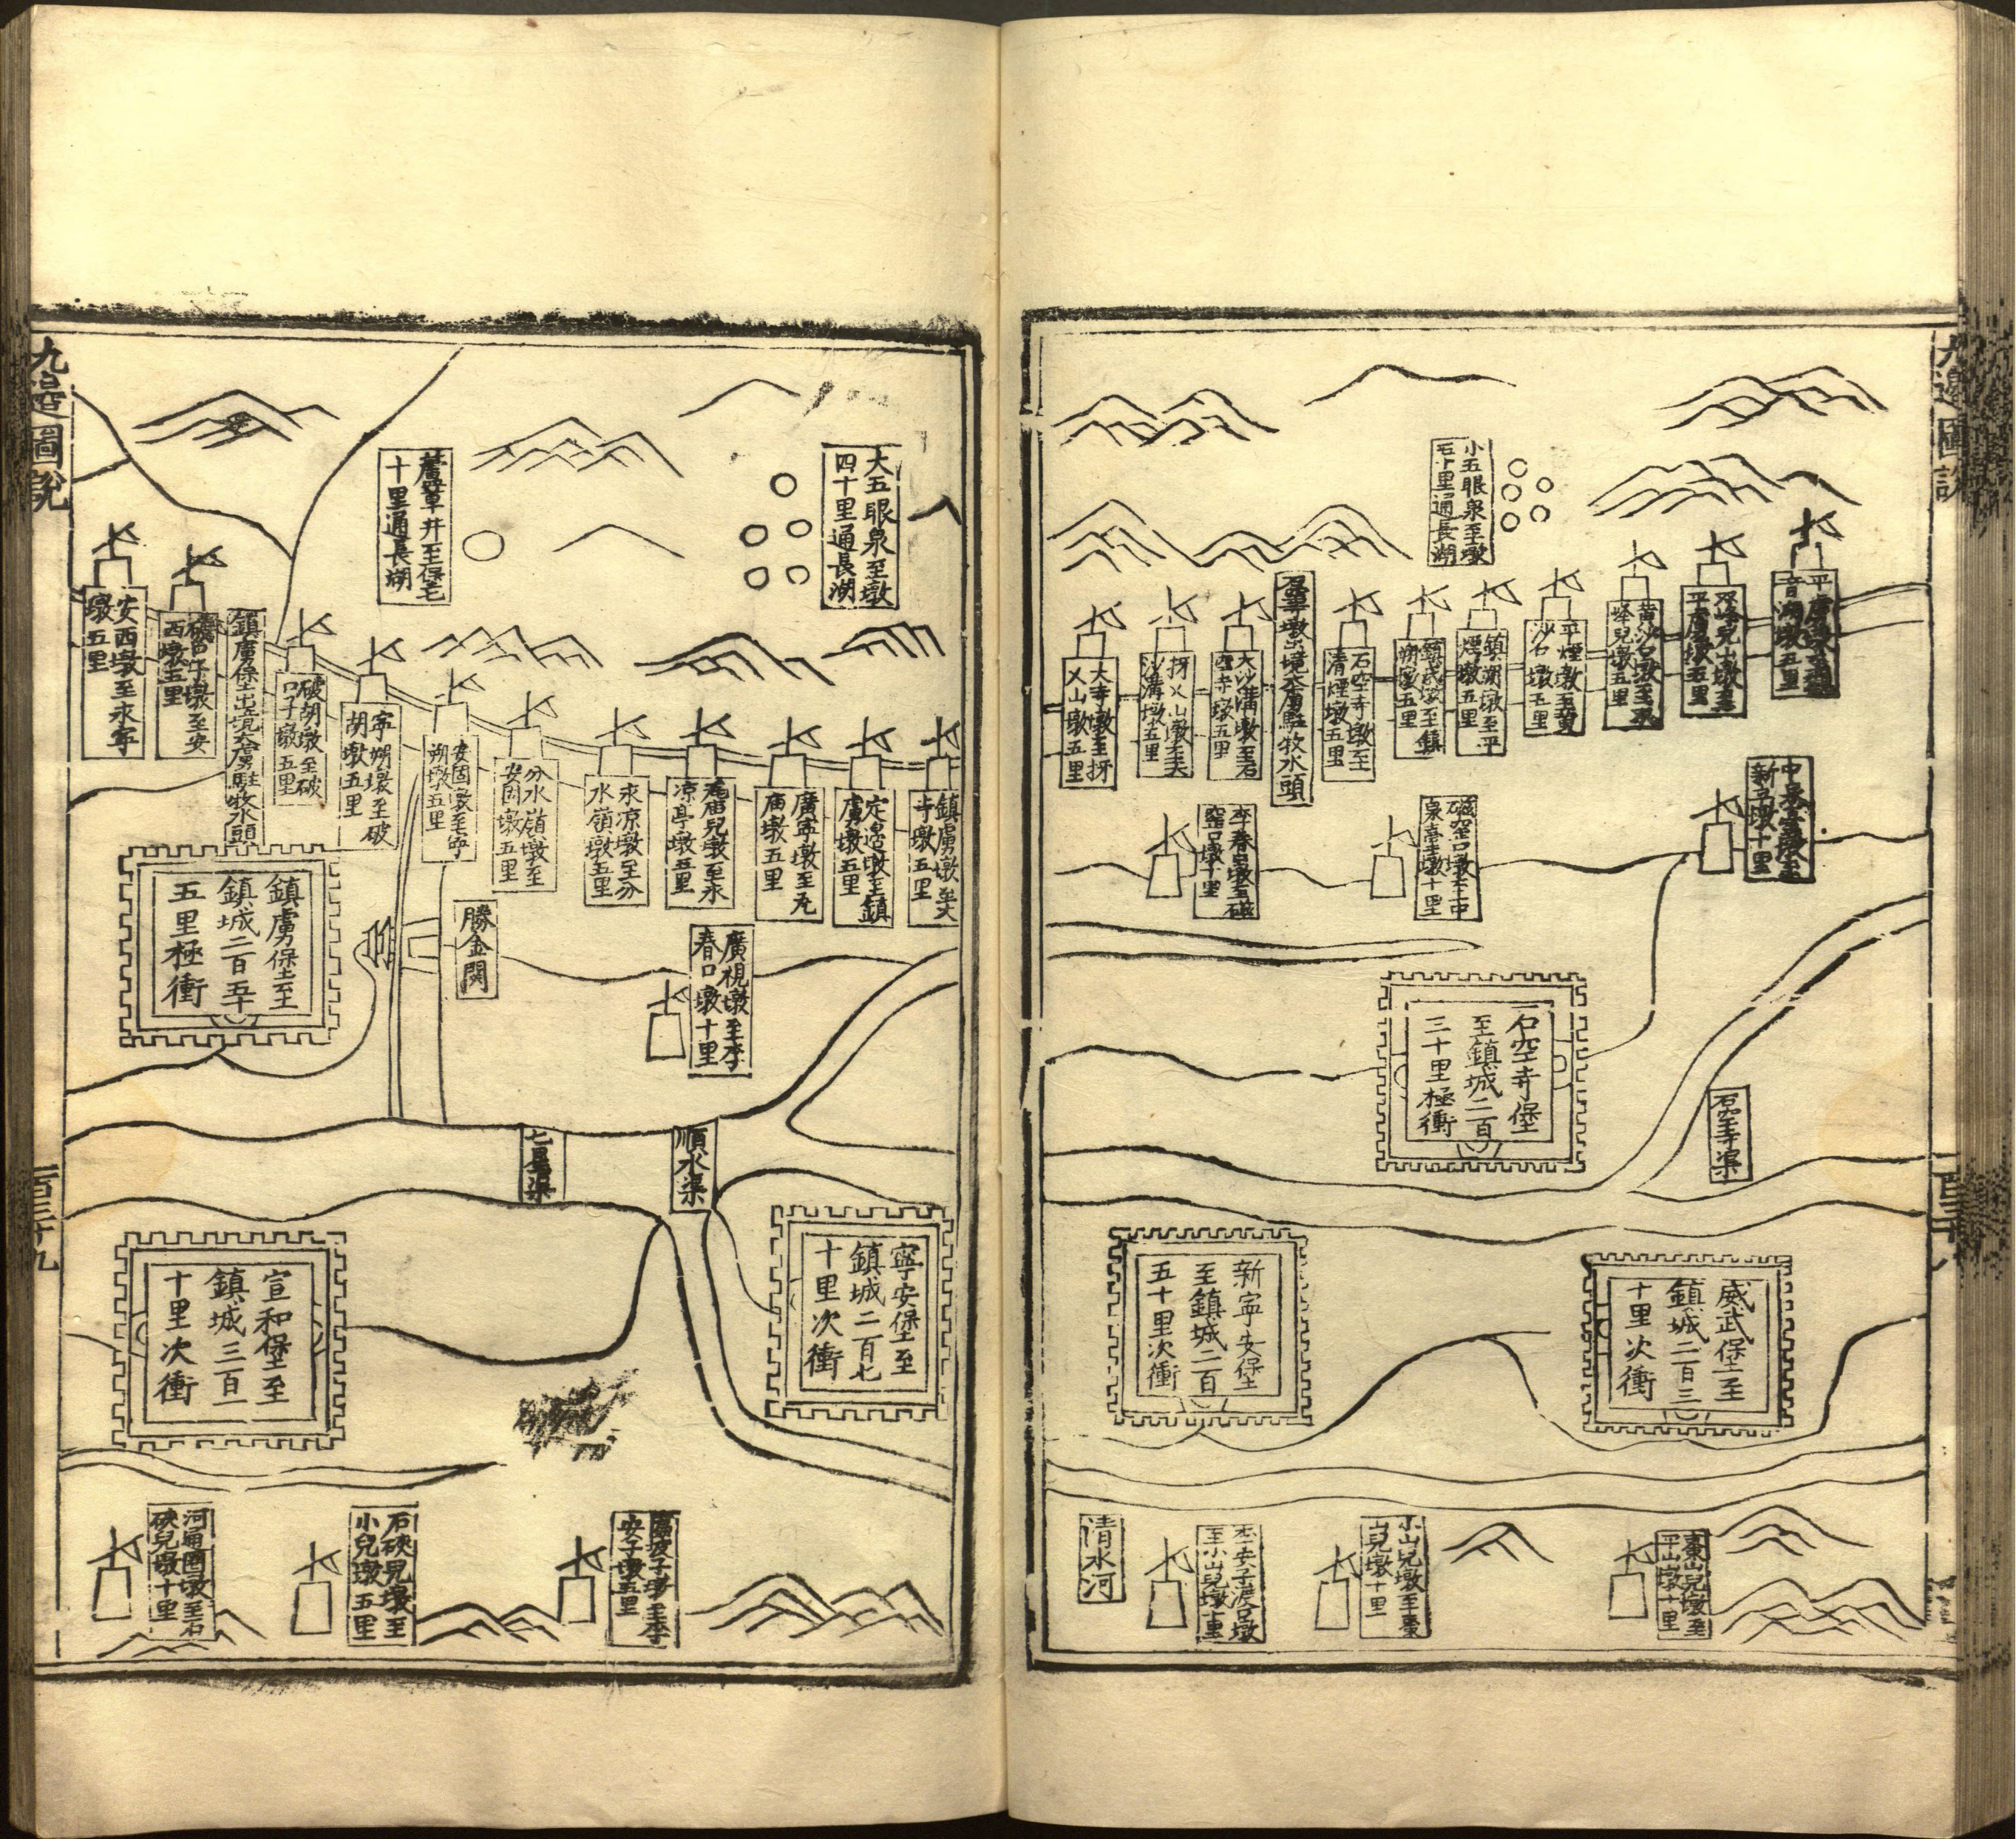 九邊圖說
小五眼泉至墩
七十里通長湖
平虜墩至
音湖墩五里
双峰兒山墩至
平虜墩五里
黄沙石墩至双
峰兒墩五里
平煙墩至黄
沙石墩五里
鎮湖墩至平
煙墩五里
鎮武墩至鎮
朔墩五里
石空寺墩至
清煙墩五里
墩出境夾虜駐牧水頭
大沙溝墩至石
空寺墩五里
拜乂山墩至大
沙溝墩五里
大寺墩至拜
乂山墩五里
新墩十里
磁窑口墩至中
泉墩十里
李春口墩至磁
窑口墩十里
石空寺堡
至鎮城二百
三十里極衝
石空寺渠
威武堡至
鎮城二百三
十里次衝
新寧安堡
至鎮城二百
五十里次衝
棗山兒墩至
平山墩十里
小山兒墩至棗
山兒墩十里
李安子渡口墩
至小山兒墩十里
清水河
大五眼泉至墩
四十里通長湖
蘆草井至保七
十里通長湖
鎮虜墩至大
寺墩五里
定邊墩至鎮
虜墩五里
廣寧墩至
墩五里
兒墩至永
凉亭墩五里
永凉墩至分
水嶺墩五里
分水嶺墩至
安固墩五里
安固墩至寧
朔墩五里
寧朔墩至破
胡墩五里
破胡墩至破
口子墩五里
鎮虜堡出境夾虜駐牧水頭
墩至安
西墩五里
安西墩至永寧
墩五里
鎮虜堡至
鎮城二百五十
五里極衝
勝金関
廣視墩至李
春口墩十里
七星渠
順水渠
寧安堡至
鎮城二百七
十里次衝
宣和堡至
鎮城三百一
十里次衝
墩至李
安子墩五里
石硤兒墩至
小兒墩五里
河通圈墩至石
硤兒墩十里
九邊圖說
一百三十九